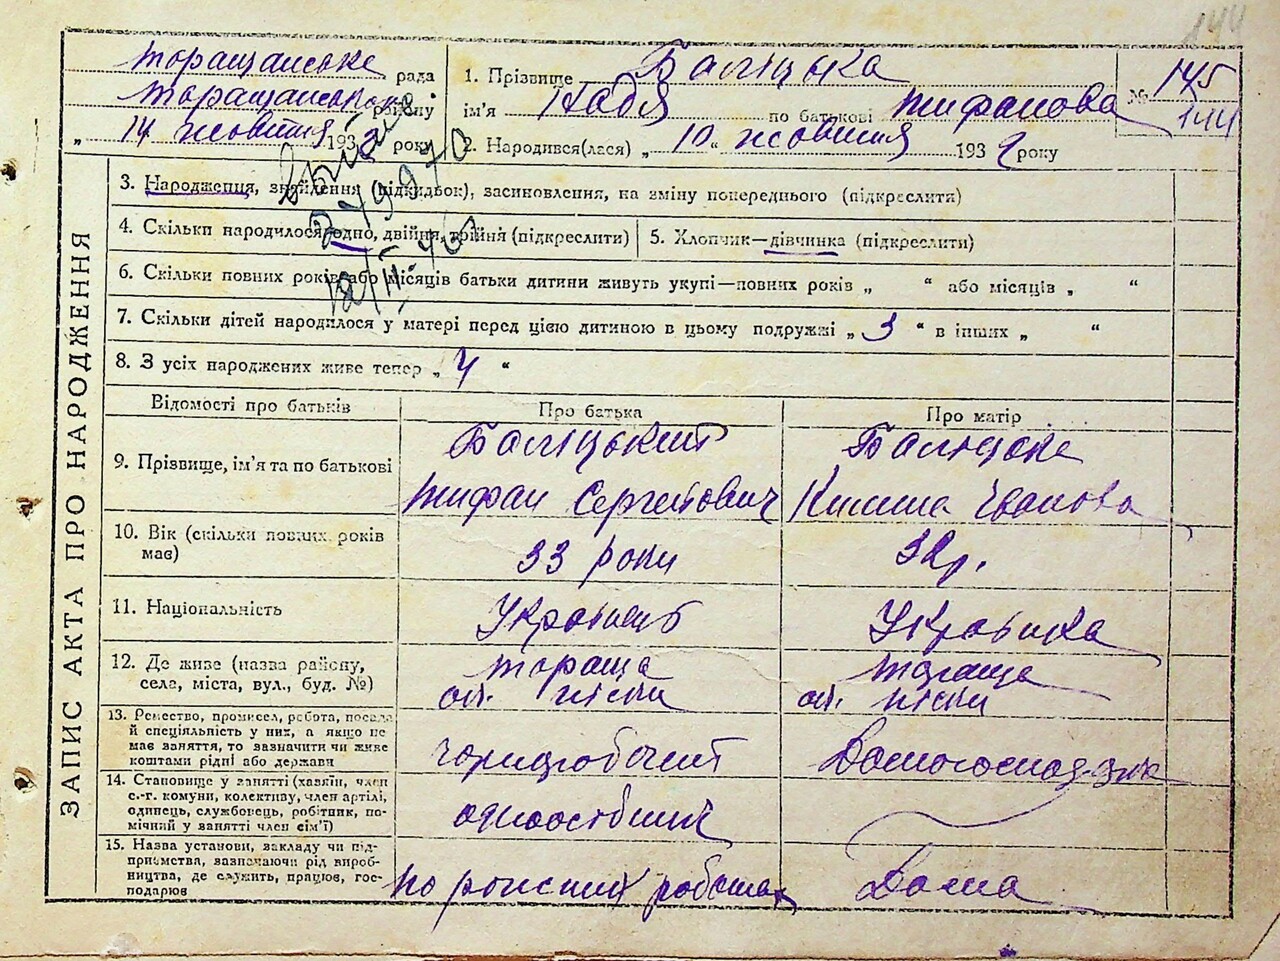 144
Торащанське рада
Торащанського району
„ 14 жовтня 1932 року
1. Прізвище Баліцька
ім'я Надя по батькові Тифанова
№ 145
144
2. Народився(лася) „ 10 “ жовтня 1932 року
ЗАПИС АКТА ПРО НАРОДЖЕННЯ
3. Народження, знайлення (підкидьок), засиновлення, на зміну попереднього (підкреслити)
4. Скільки народилося: одно, двійня, трійня (підкреслити)
5. Хлопчик—дівчинка (підкреслити)
6. Скільки повних років або місяців батьки дитини живуть укупі—повних років „ “ або місяців „ “
7. Скільки дітей народилося у матері перед цією дитиною в цьому подружжі „ 3 “ в інших „ “
8. З усіх народжених живе тепер „ 4 “
Відомості про батьків
Про батька
Про матір
9. Прізвище, ім'я та по батькові
Баліцький
Тифан Сергейович
Баліцька
Килина Іванова
10. Вік (скільки повних років
має)
33 роки
32 р.
11. Національність
Українець
Українка
12. Де живе (назва району,
села, міста, вул., буд. №)
Тараща
ос. піски
Тараща
ос. піски
13. Ремество, промисел, робота, посада
й спеціяльність у них, а якщо не
має заняття, то зазначити чи живе
коштами рідні або держави
чорнороб
Домогоспод-рка
14. Становище у занятті (хазяїн, член
с.-г. комуни, колективу, член артілі,
одинець, службовець, робітник, по-
мічний у занятті член сім'ї)
одноосібник
15. Назва установи, закладу чи під-
приємства, зазначаючи рід вироб-
ництва, де служить, працює, гос-
подарює
по роботах
Дома